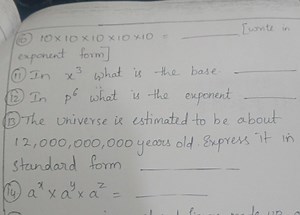 ⑩ 10×10×10×10×10 = ______ [write in
exponent form]
⑪ In x³ what is the base ______
⑫ In p⁶ what is the exponent ______
⑬ The Universe is estimated to be about
12,000,000,000 years old. Express it in
standard form ______
⑭ aˣ × aʸ × aᶻ = ______